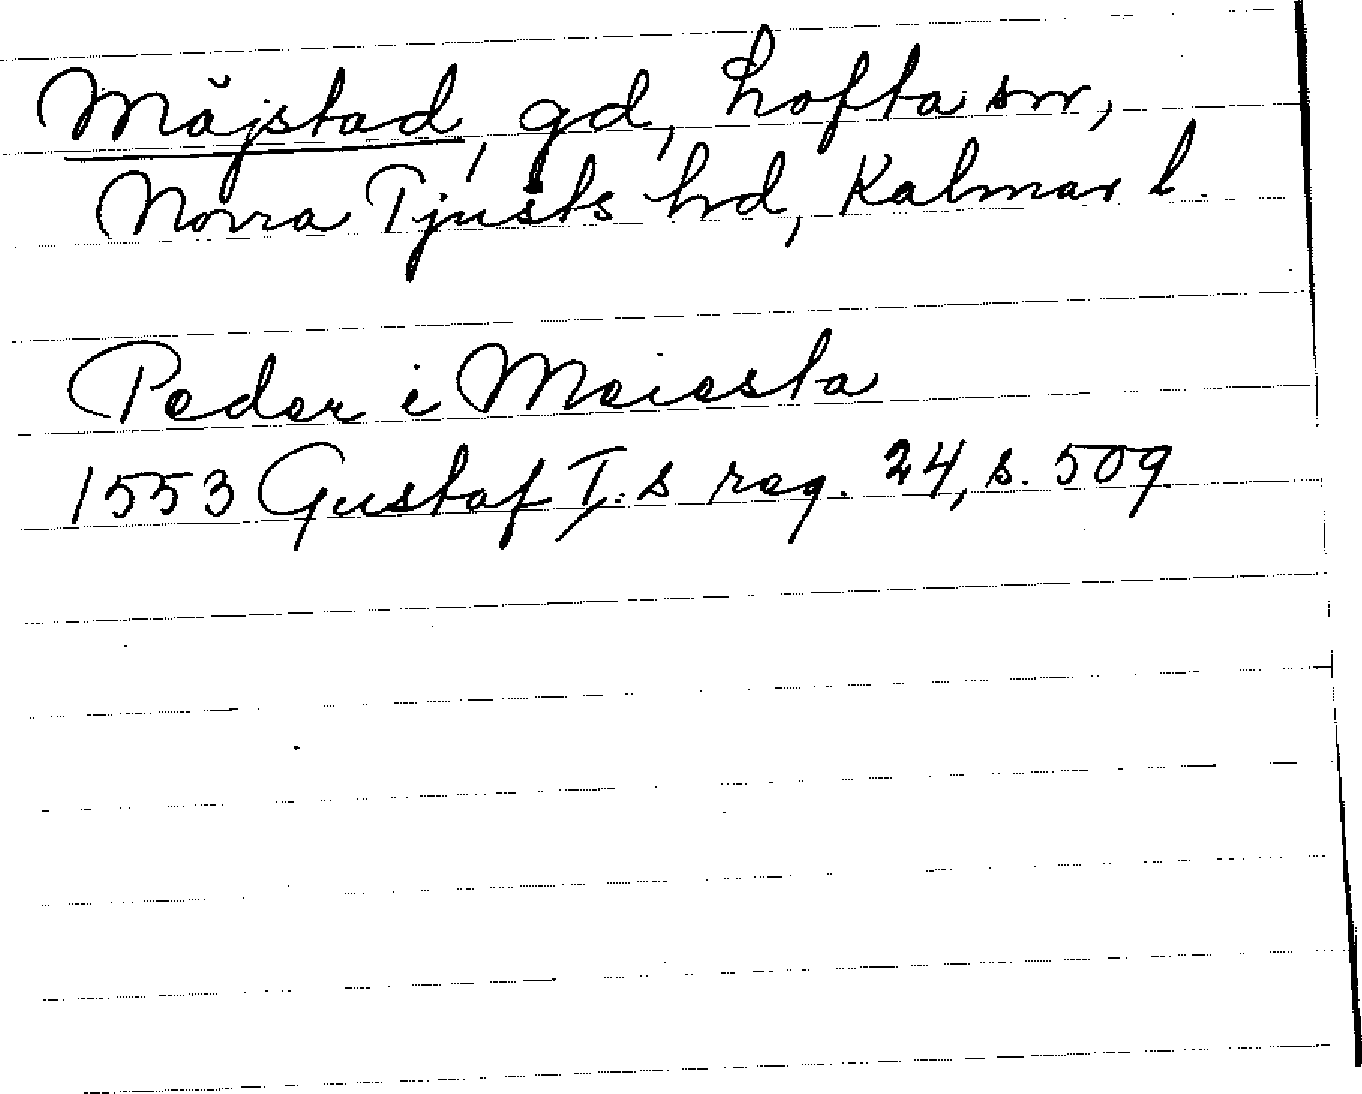 Måjstad, gd, Lofta sn,
Norra Tjusts hrd, Kalmar l.
Peder i Meiesta
1553 Gustaf I:s reg. 24, s. 509